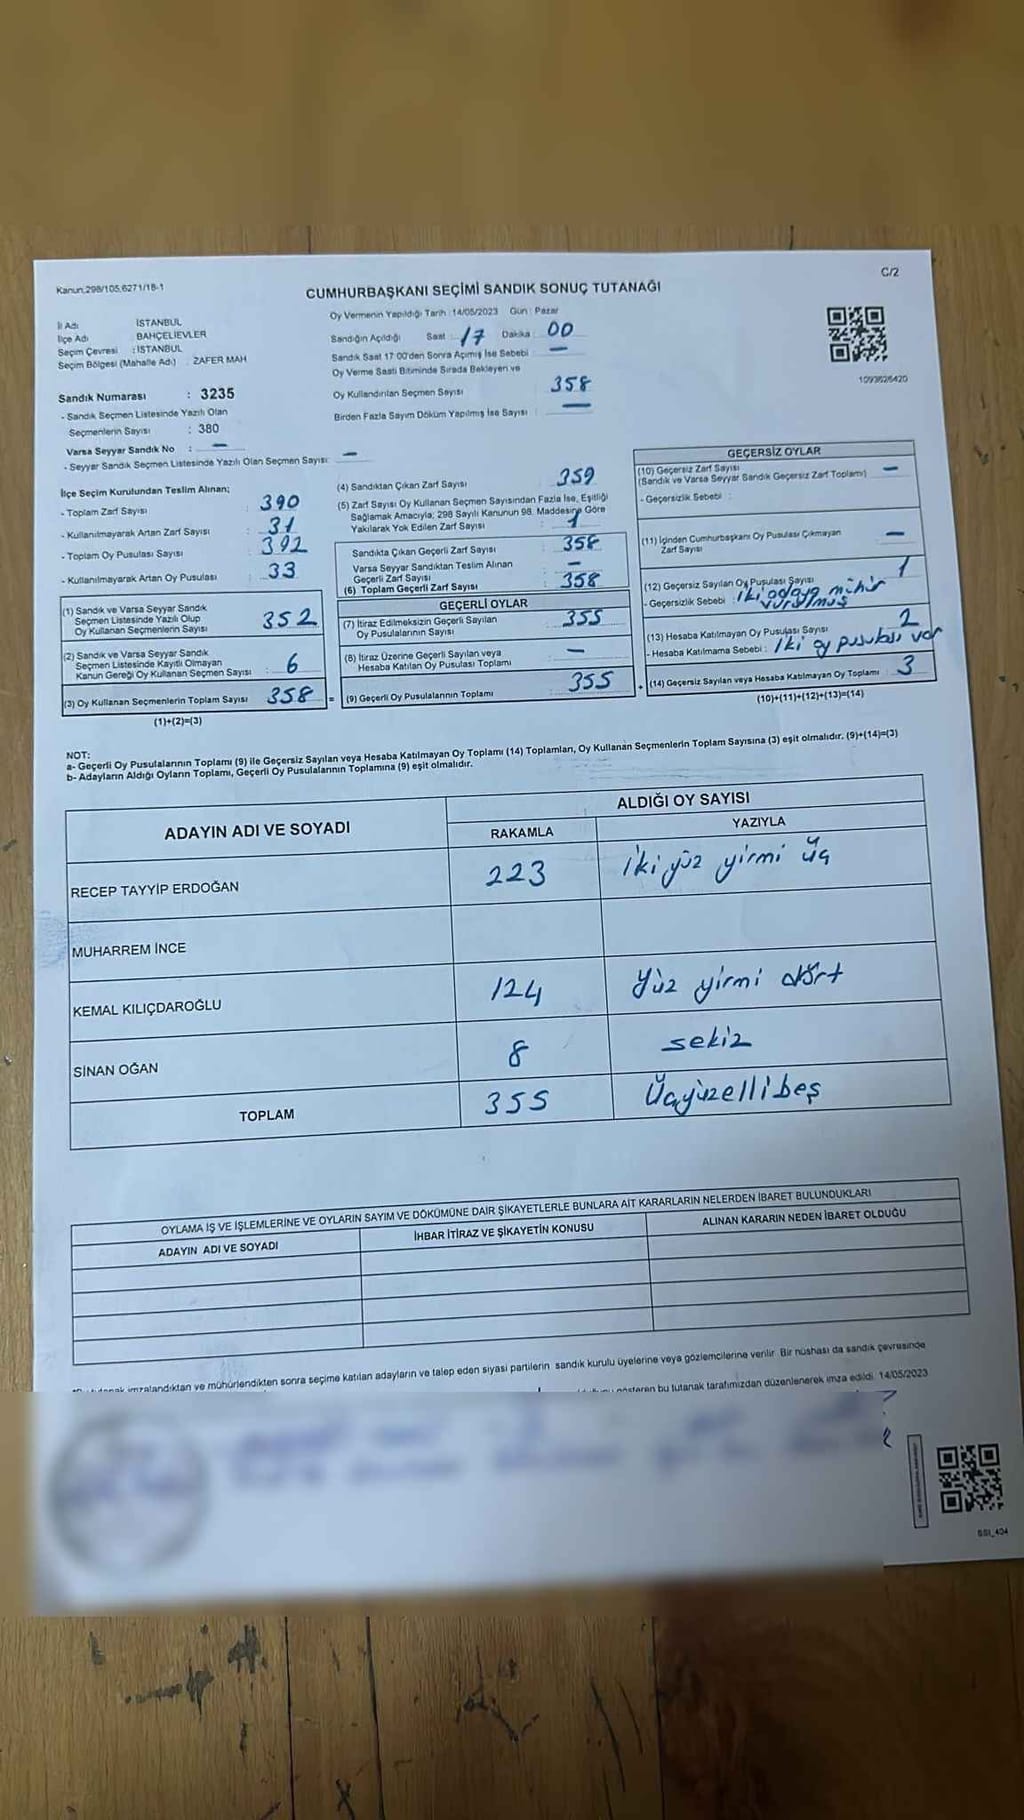 Kanun:298/105,6271/18-1
C/2
CUMHURBAŞKANI SEÇİMİ SANDIK SONUÇ TUTANAĞI
İl Adı İSTANBUL
İlçe Adı BAHÇELİEVLER
Seçim Çevresi : İSTANBUL
Seçim Bölgesi (Mahalle Adı) : ZAFER MAH
Sandık Numarası : 3235
- Sandık Seçmen Listesinde Yazılı Olan
Seçmenlerin Sayısı : 380
Varsa Seyyar Sandık No : —
- Seyyar Sandık Seçmen Listesinde Yazılı Olan Seçmen Sayısı: —
Oy Vermenin Yapıldığı Tarih :14/05/2023 Gün : Pazar
Sandığın Açıldığı Saat : 17 Dakika : 00
Sandık Saat 17 00'den Sonra Açımış İse Sebebi : —
Oy Verme Saati Bitiminde Sırada Bekleyen ve
Oy Kullandırılan Seçmen Sayısı : 358
Birden Fazla Sayım Döküm Yapılmış İse Sayısı : —
1093626420
İlçe Seçim Kurulundan Teslim Alınan;
- Toplam Zarf Sayısı : 390
- Kullanılmayarak Artan Zarf Sayısı : 31
- Toplam Oy Pusulası Sayısı : 392
- Kullanılmayarak Artan Oy Pusulası : 33
(1) Sandık ve Varsa Seyyar Sandık
Seçmen Listesinde Yazılı Olup
Oy Kullanan Seçmenlerin Sayısı : 352
(2) Sandık ve Varsa Seyyar Sandık
Seçmen Listesinde Kayıtlı Olmayan
Kanun Gereği Oy Kullanan Seçmen Sayısı : 6
(3) Oy Kullanan Seçmenlerin Toplam Sayısı : 358 =
(1)+(2)=(3)
(4) Sandıktan Çıkan Zarf Sayısı : 359
(5) Zarf Sayısı Oy Kullanan Seçmen Sayısından Fazla İse, Eşitliği
Sağlamak Amacıyla; 298 Sayılı Kanunun 98. Maddesine Göre
Yakılarak Yok Edilen Zarf Sayısı : 1
Sandıkta Çıkan Geçerli Zarf Sayısı : 358
Varsa Seyyar Sandıktan Teslim Alınan
Geçerli Zarf Sayısı : —
(6) Toplam Geçerli Zarf Sayısı : 358
GEÇERLİ OYLAR
(7) İtiraz Edilmeksizin Geçerli Sayılan
Oy Pusulalarının Sayısı : 355
(8) İtiraz Üzerine Geçerli Sayılan veya
Hesaba Katılan Oy Pusulası Toplamı : —
(9) Geçerli Oy Pusulalarının Toplamı : 355 +
GEÇERSİZ OYLAR
(10) Geçersiz Zarf Sayısı
(Sandık ve Varsa Seyyar Sandık Geçersiz Zarf Toplamı) : —
- Geçersizlik Sebebi :
(11) İçinden Cumhurbaşkanı Oy Pusulası Çıkmayan
Zarf Sayısı : —
(12) Geçersiz Sayılan Oy Pusulası Sayısı : 1
- Geçersizlik Sebebi : iki adaya mühür
vurulmuş
(13) Hesaba Katılmayan Oy Pusulası Sayısı : 2
- Hesaba Katılmama Sebebi : iki oy pusulası var
(14) Geçersiz Sayılan veya Hesaba Katılmayan Oy Toplamı : 3
(10)+(11)+(12)+(13)=(14)
NOT:
a- Geçerli Oy Pusulalarının Toplamı (9) ile Geçersiz Sayılan veya Hesaba Katılmayan Oy Toplamı (14) Toplamları, Oy Kullanan Seçmenlerin Toplam Sayısına (3) eşit olmalıdır. (9)+(14)=(3)
b- Adayların Aldığı Oyların Toplamı, Geçerli Oy Pusulalarının Toplamına (9) eşit olmalıdır.
ADAYIN ADI VE SOYADI
ALDIĞI OY SAYISI
RAKAMLA YAZIYLA
RECEP TAYYİP ERDOĞAN 223 iki yüz yirmi üç
MUHARREM İNCE
KEMAL KILIÇDAROĞLU 124 Yüz yirmi dört
SİNAN OĞAN 8 sekiz
TOPLAM 355 Üçyüzellibeş
OYLAMA İŞ VE İŞLEMLERİNE VE OYLARIN SAYIM VE DÖKÜMÜNE DAİR ŞİKAYETLERLE BUNLARA AİT KARARLARIN NELERDEN İBARET BULUNDUKLARI
ADAYIN ADI VE SOYADI İHBAR İTİRAZ VE ŞİKAYETİN KONUSU ALINAN KARARIN NEDEN İBARET OLDUĞU
imzalandıktan ve mühürlendikten sonra seçime katılan adayların ve talep eden siyasi partilerin sandık kurulu üyelerine veya gözlemcilerine verilir. Bir nüshası da sandık çevresinde
gösteren bu tutanak tarafımızdan düzenlenerek imza edildi. 14/05/2023
SSI_404